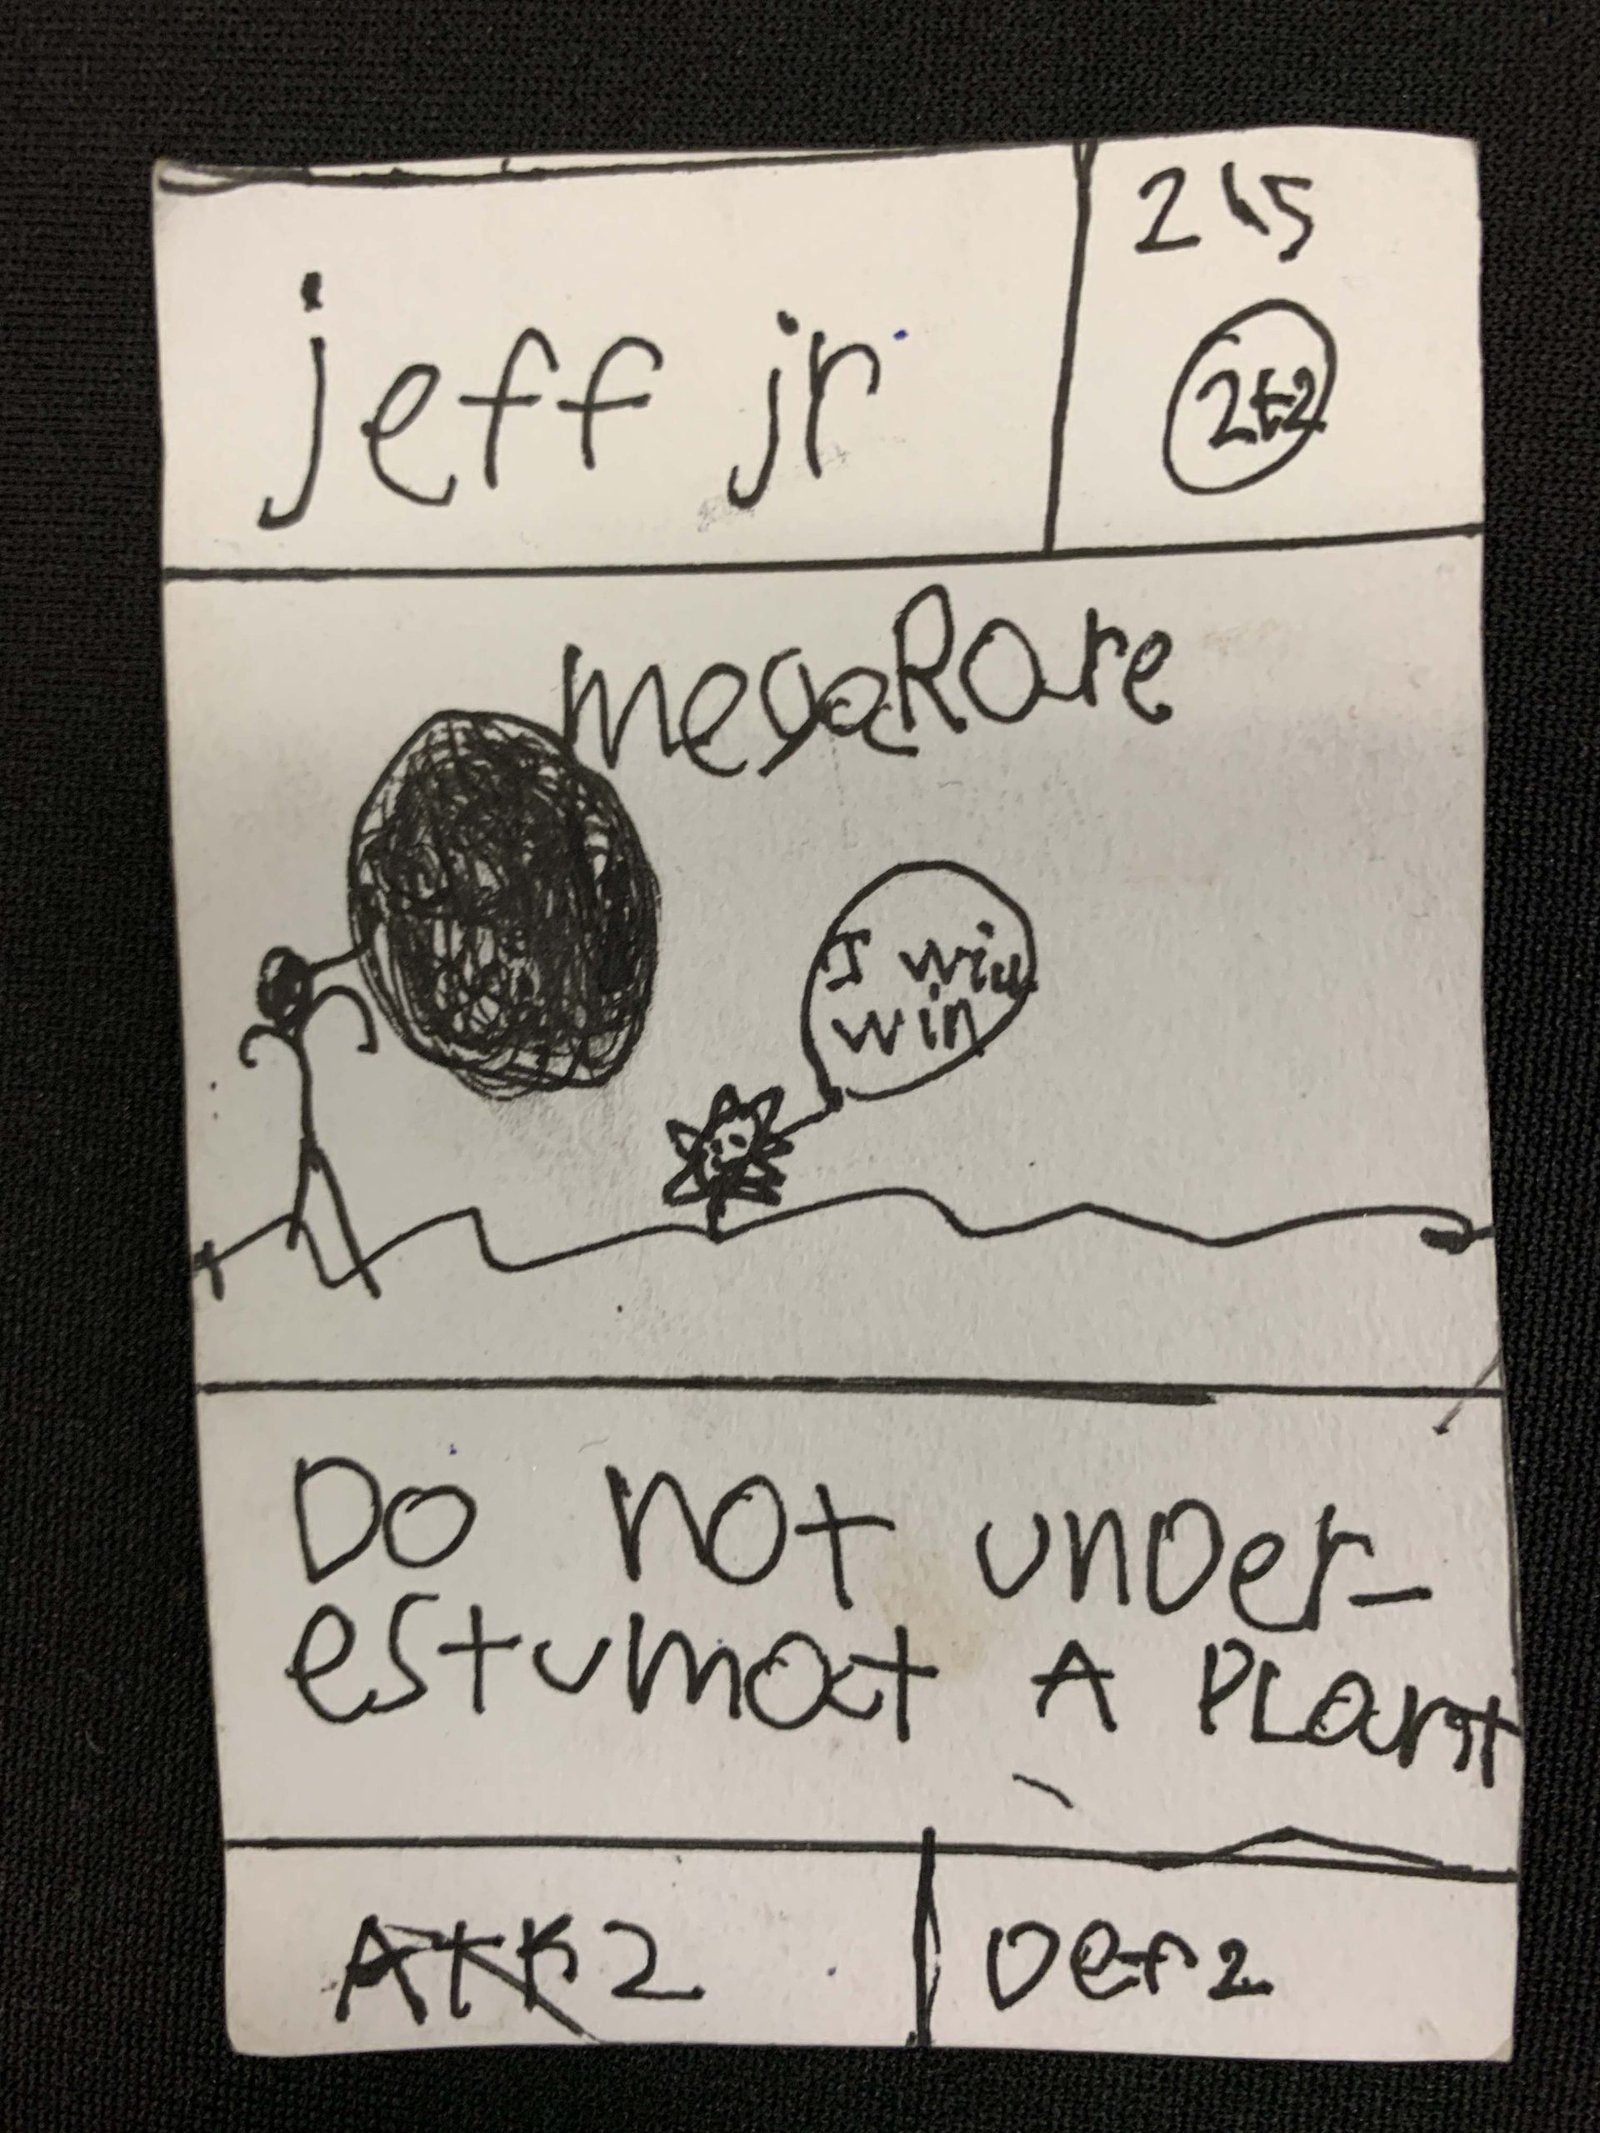 jeff jr
2 \ 5
2+2
megaRare
I will
win
Do not unDer-
estumat A PLant
ATK 2
Def 2